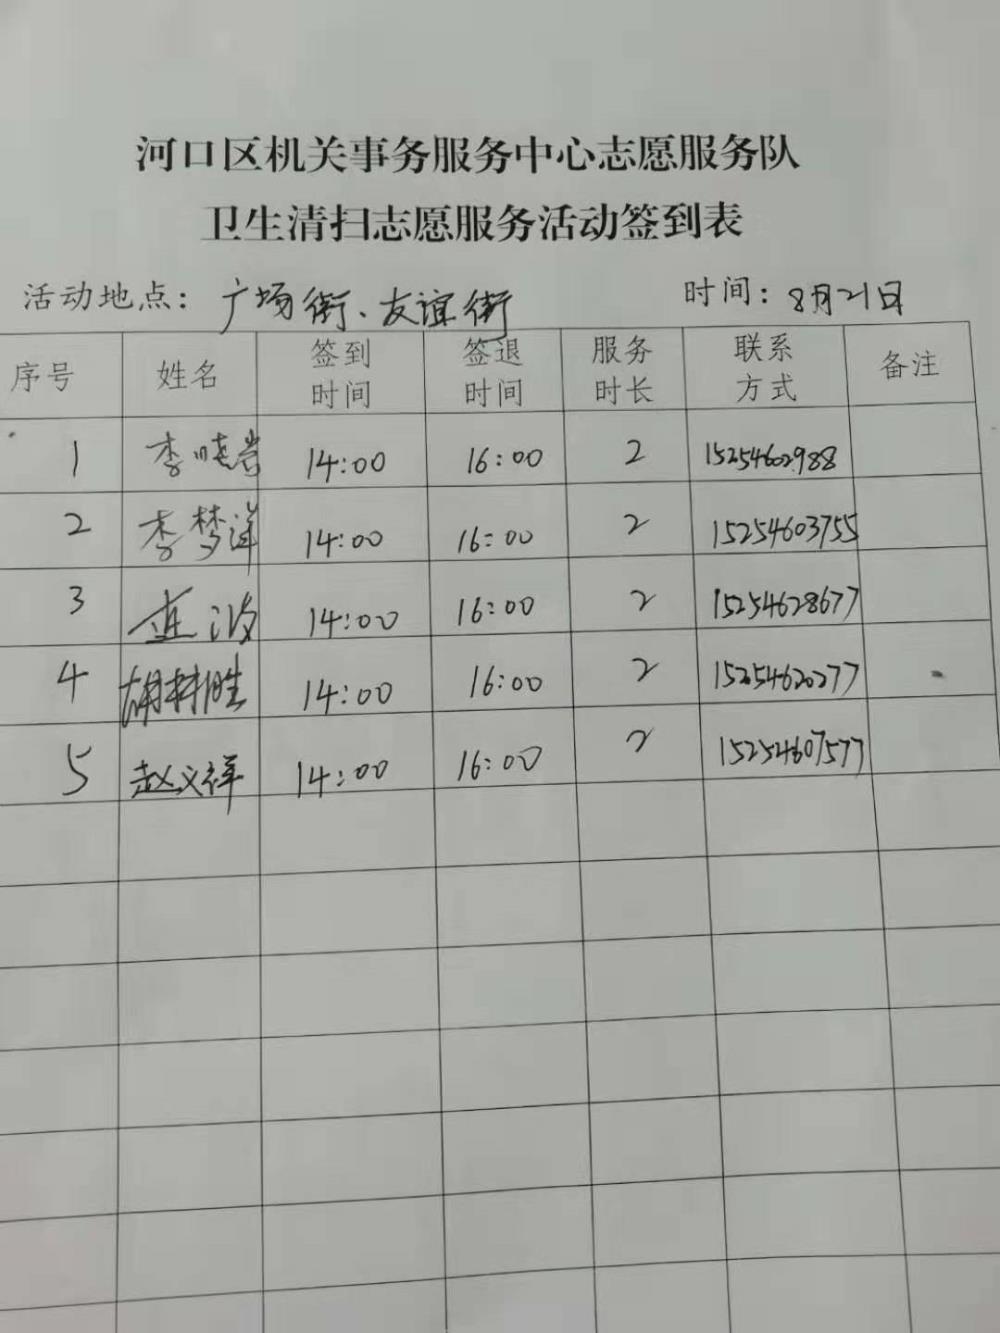 河口区机关事务服务中心志愿服务队
卫生清扫志愿服务活动签到表
活动地点：广场街、友谊街 时间：8月21日
序号 姓名 签到时间 签退时间 服务时长 联系方式 备注
1 李晓岩 14:00 16:00 2 15254602988
2 李梦洋 14:00 16:00 2 15254603755
3 14:00 16:00 2 15254628677
4 胡林胜 14:00 16:00 2 15254620277
5 赵义祥 14:00 16:00 2 15254607577